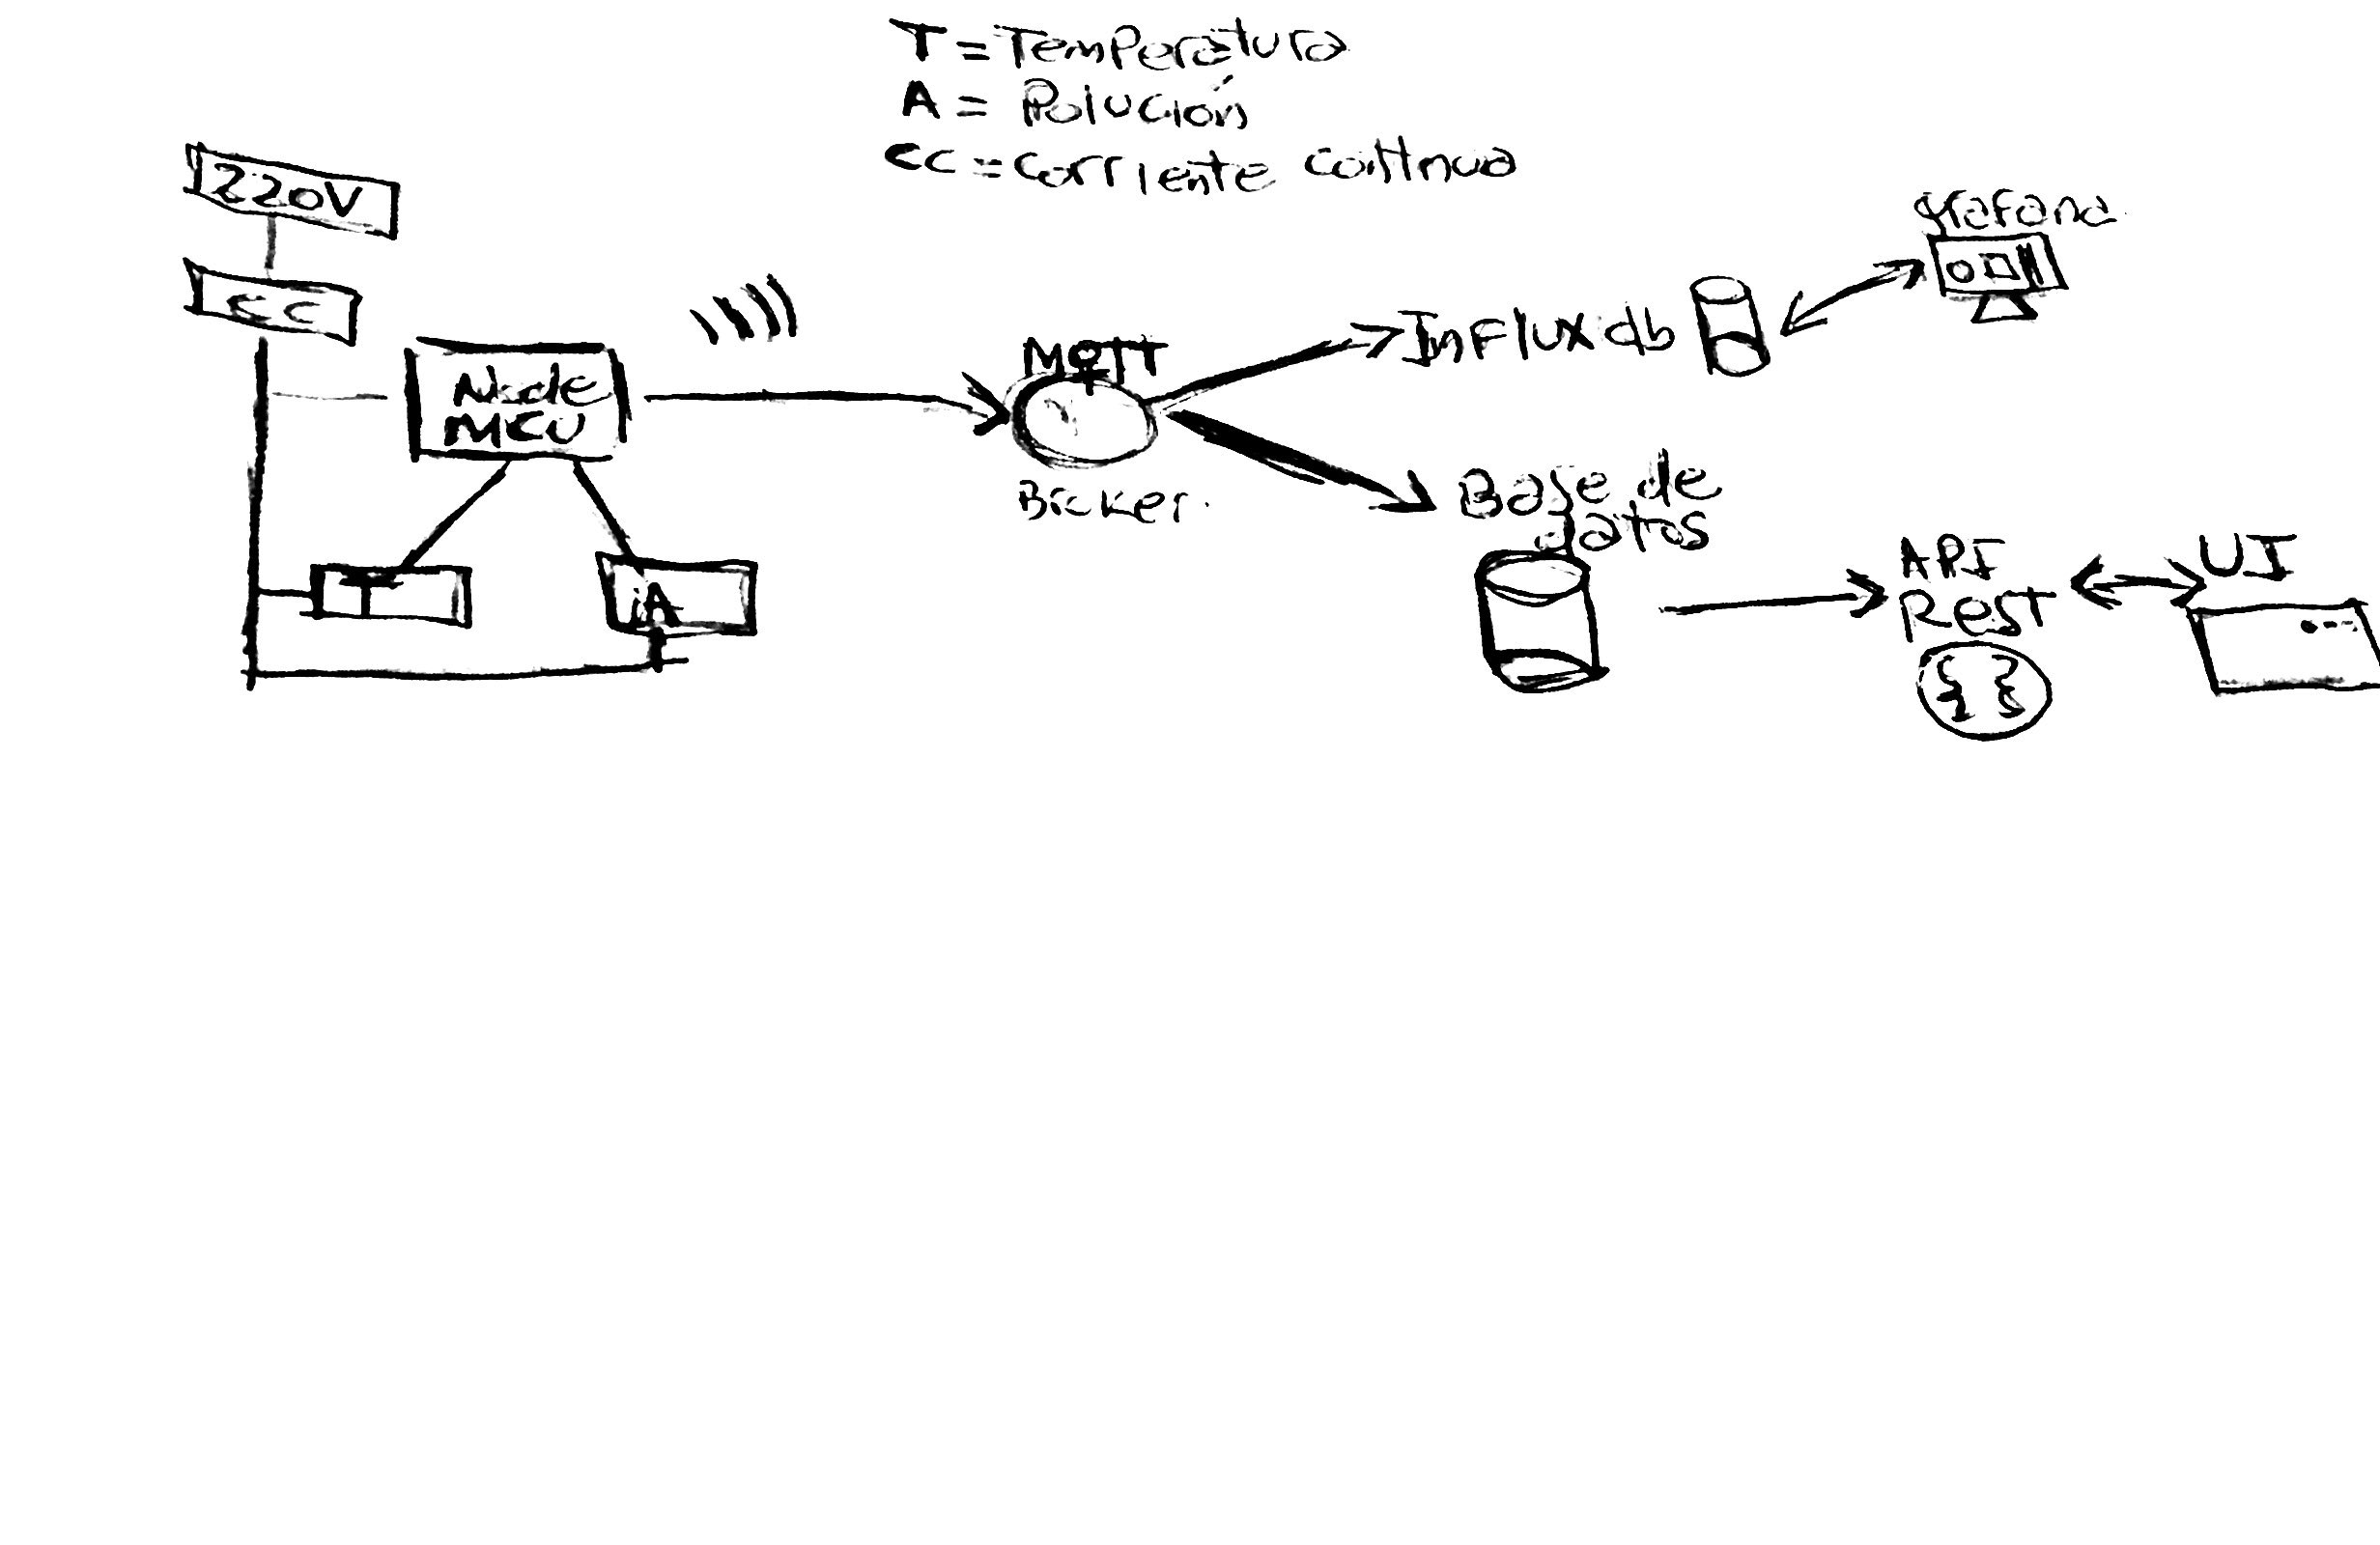 T = Temperatura
A = Polución
CC = Corriente Continua
220V
CC
Node
MCU
T
A
MQTT
Bicker.
Influxdb
grafana
Base de
datos
API
REST
{ }
UI